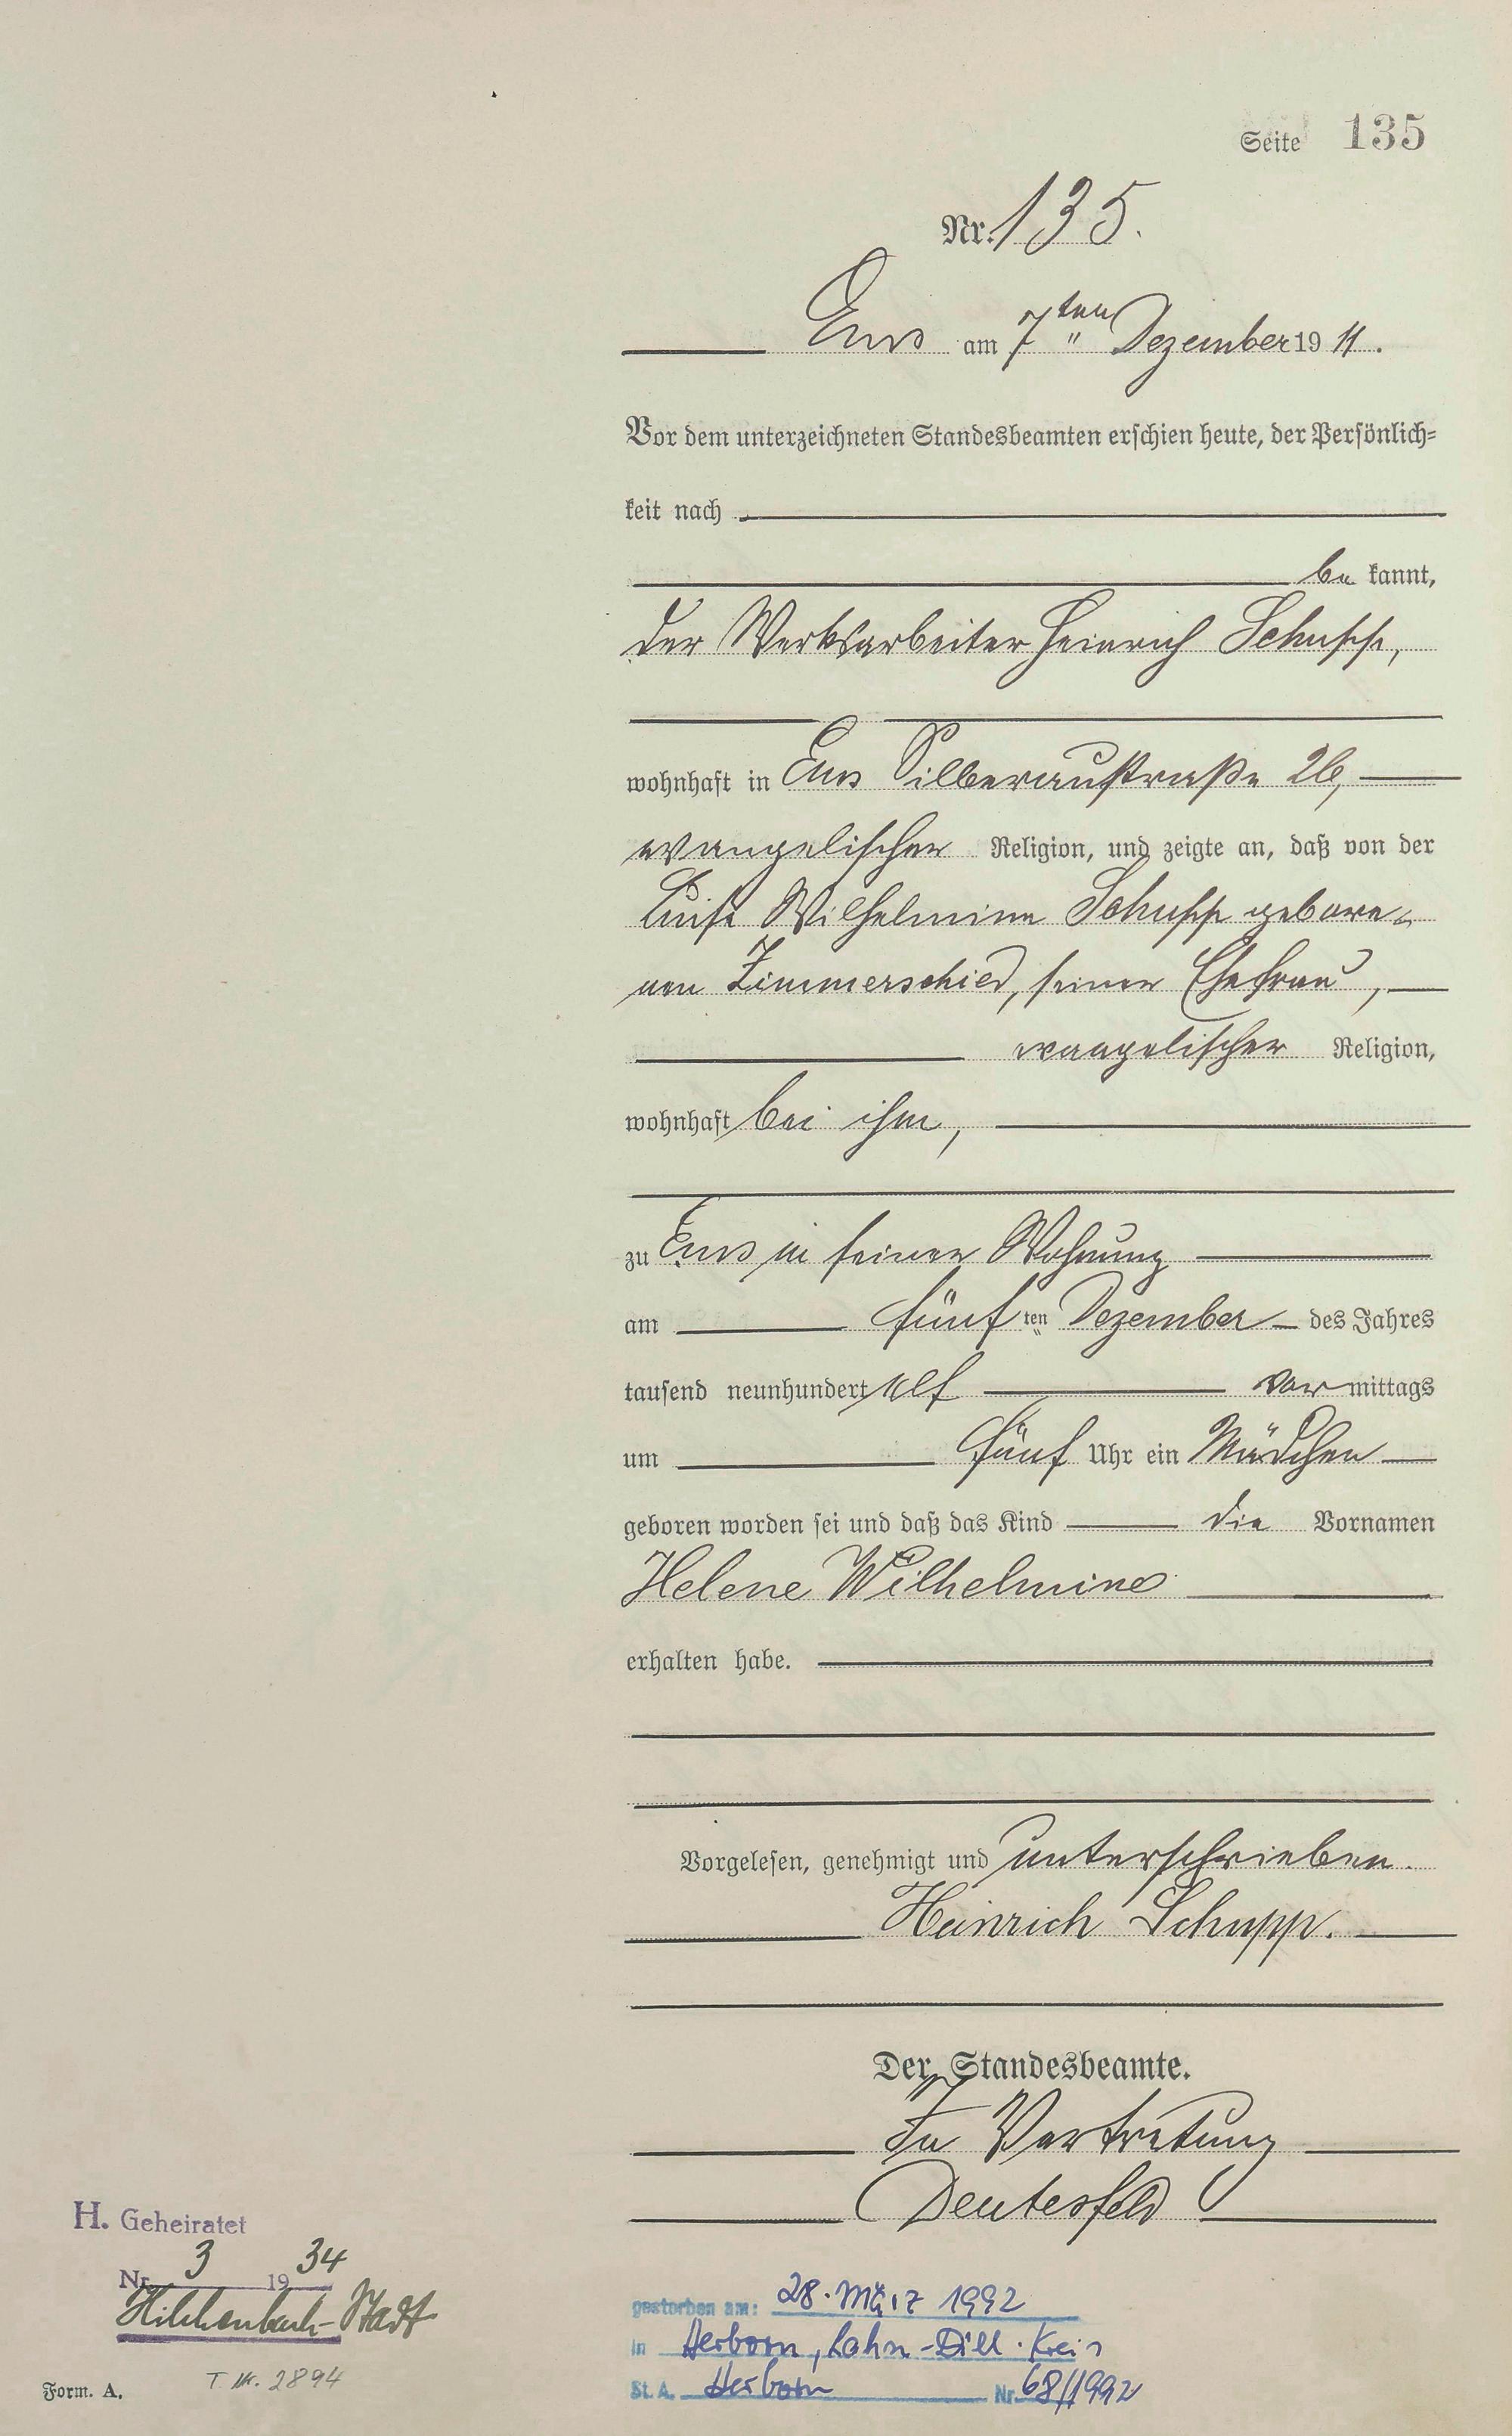 Seite 135
Nr. 135.
Ems am 7ten Dezember 1911.
Vor dem unterzeichneten Standesbeamten erschien heute, der Persönlich=
keit nach
be kannt,
der Werksarbeiter Heinrich Schupp,
wohnhaft in Ems Silberaustraße 26,
evangelischer Religion, und zeigte an, daß von der
Luise Wilhelmine Schupp gebore-
nen Zimmerschied, seiner Ehefrau,
evangelischer Religion,
wohnhaft bei ihm,
zu Ems in seiner Wohnung
am fünf ten Dezember des Jahres
tausend neunhundert elf vor mittags
um fünf Uhr ein Mädchen
geboren worden sei und daß das Kind die Vornamen
Helene Wilhelmine
erhalten habe.
Vorgelesen, genehmigt und unterschrieben.
Heinrich Schupp.
Der Standesbeamte.
In Vertretung
Deutesfeld
H. Geheiratet
Nr. 3 1934
Hilchenbach-Stadt
Form. A.
2894
gestorben am: 28. März 1992
in Herborn, Lahn-Dill-Kreis
St. A. Herborn Nr. 68/1992